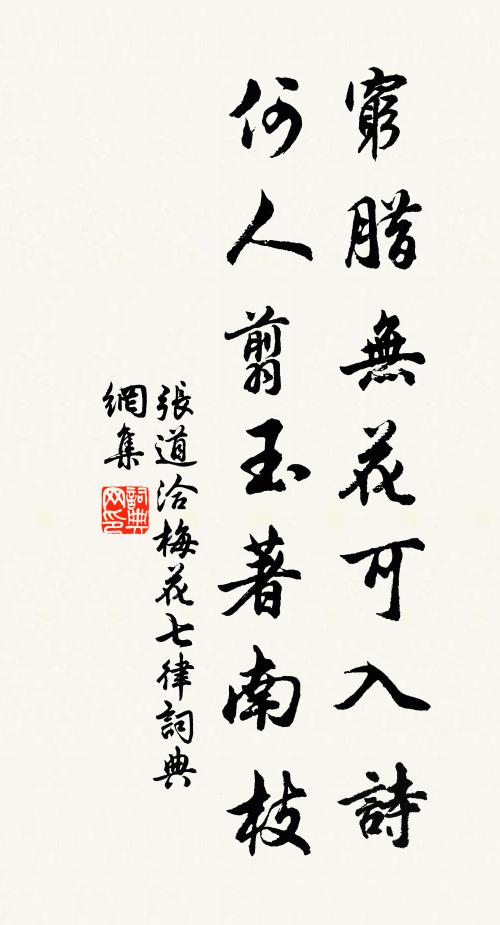 窮腊無花可入詩
何人翦玉著南枝
張道洽梅花七律詞典
網集
詞典
网印